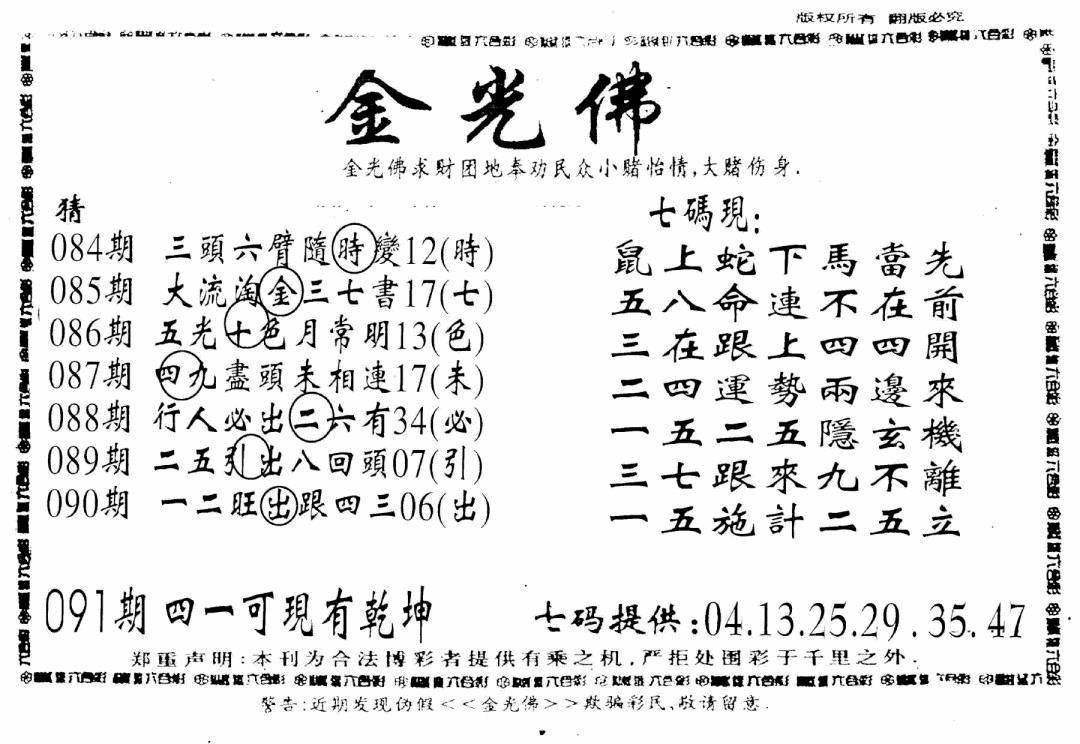 版权所有 翻版必究
金光佛
金光佛求财团地奉劝民众小赌怡情,大赌伤身.
猜
084期 三頭六臂隨時變12(時)
085期 大流淘金三七書17(七)
086期 五光十色月常明13(色)
087期 四九盡頭未相連17(未)
088期 行人必出二六有34(必)
089期 二五引出八回頭07(引)
090期 一二旺出跟四三06(出)
七碼現:
鼠上蛇下馬當先
五八命連不在前
三在跟上四四開
二四運勢兩邊來
一五二五隱玄機
三七跟來九不離
一五施計二五立
091期 四一可現有乾坤
七码提供:04.13.25.29.35.47
郑重声明:本刊为合法博彩者提供有乘之机,严拒处围彩于千里之外.
警告:近期发现伪假<<金光佛>>欺骗彩民,敬请留意.